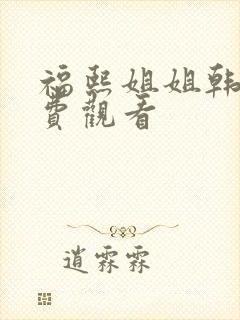 福熙姐姐韩
費觀看
逍霖霖